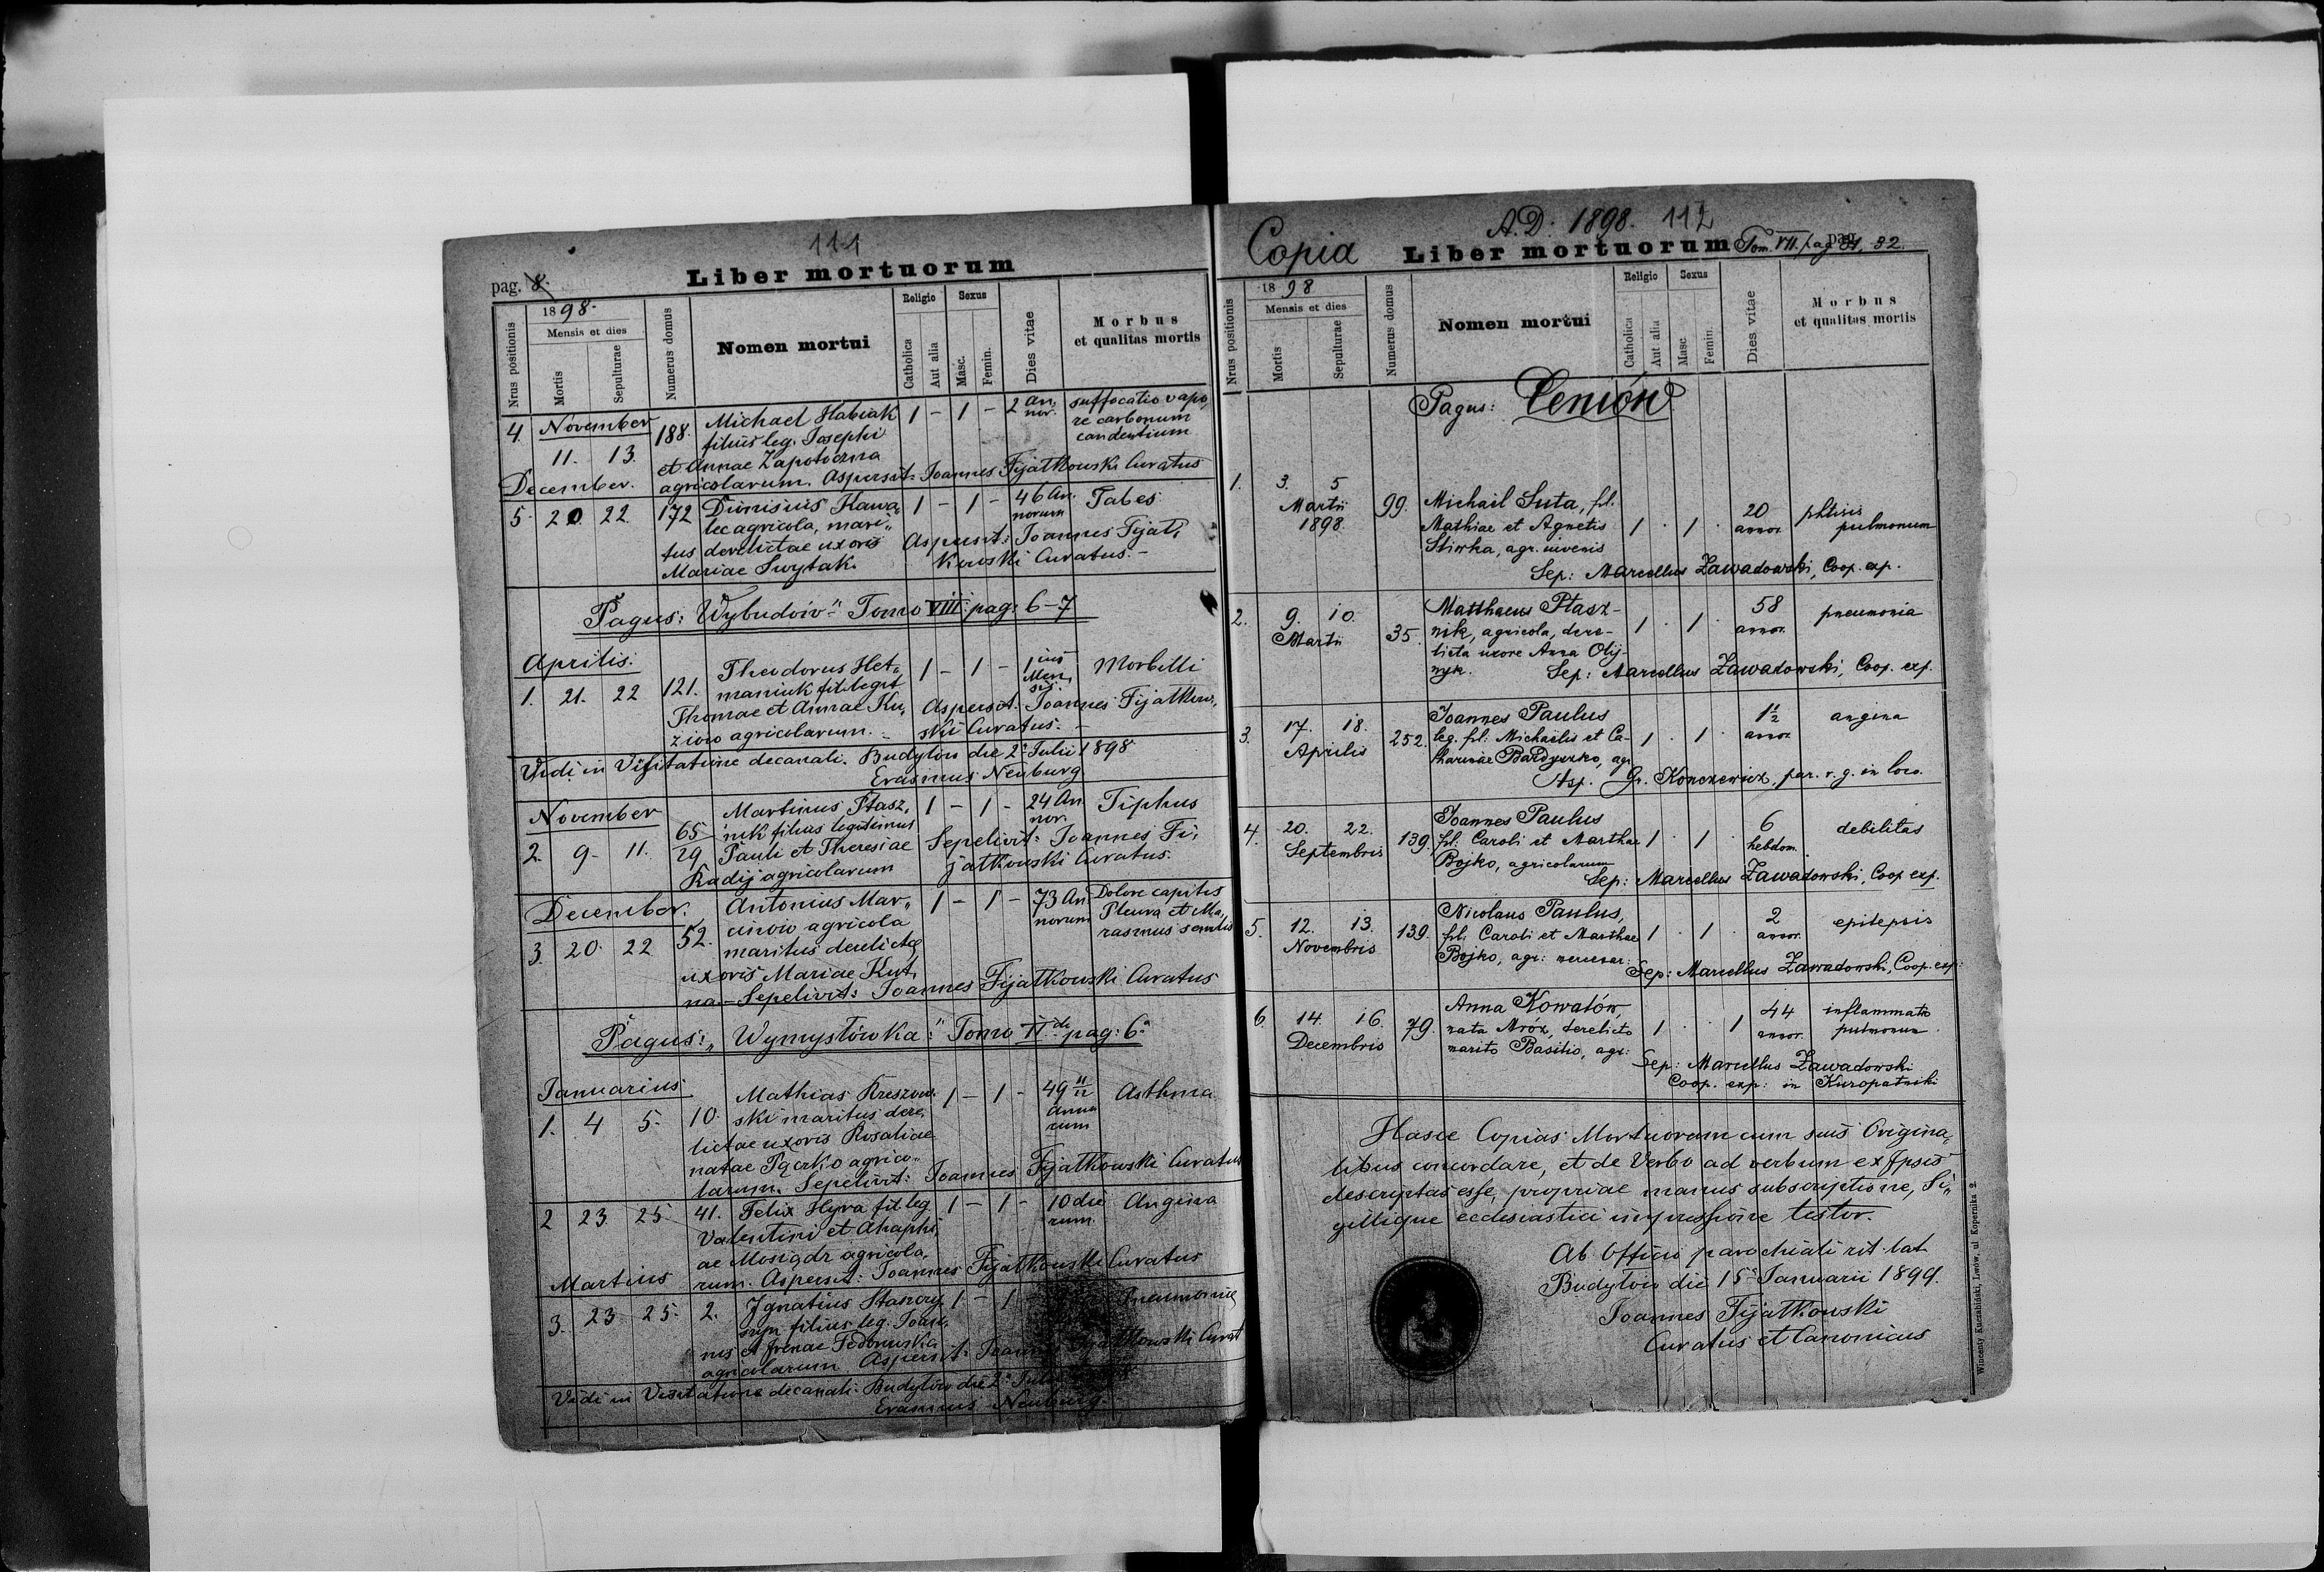 111
pag. 8.
Liber mortuorum
Nrus positionis
1898.
Mensis et dies
Mortis
Sepulturae
Numerus domus
Nomen mortui
Religio
Catholica
Aut alia
Sexus
Masc.
Femin.
Dies vitae
Morbus
et qualitas mortis
4. November 188. Michael Habiak 1 - 1 - 2 an, suffocatio vapo,
11. 13. filius leg. Josephi nor. re carbonum
et Annae Zapotoczna candentium
December. agricolarum. Aspersit: Joannes Fijałkowski Curatus
5. 20. 22. 172 Dionisius Kawa, 1 - 1 - 46 An. Tabes
lec agricola, mari,, norum
tus derelictae uxoris Aspersit: Joannes Fijał,
Mariae Swytak. kowski Curatus. -
Pagus: Wybudów" Tomo VIII. pag: 6-7
Aprilis. Theodorus Het, 1 - 1 - 1 ius Morbilli
1. 21. 22 121. maniuk fil. legit Men, sis.
Thomae et Annae Ku, Aspersit. Joannes Fijałkow,
ziow agricolarum. - ski Curatus. -
Vidi in Visitatione decanali. Budyłów die 2a Julii 1898
Erasmus Neuburg
November Martinus Ptasz, 1 - 1 - 24 An Tiphus
65/29 nik filius legitimus nor.
2. 9. 11. Pauli et Theresiae Sepelivit: Joannes Fi,
Kadij agricolarum jałkowski Curatus.
December. Antonius Mar,, 1 - 1 - 73 An Dolore capitis
3. 20. 22 52. agricola norum Pleura et Ma,
maritus derelictae rasmus senilis
uxoris Mariae Kut,
na. - Sepelivit: Joannes Fijałkowski Curatus
Pagus: „Wymysłówka" Tomo II do pag: 6a
Januarius Mathias Kreszow. 1 - 1 - 49 11/12 Asthma
1. 4 5. 10. ski maritus dere, anno
lictae uxoris Rosaliae rum
natae agrico,,
larum. Sepelivit: Joannes Fijałkowski Curatus
2 23. 25. 41. Felix Hyra fil leg. 1 - 1 - 10 die Angina
Valentini et Ahaphi, rum.
ae agricola,
Martius rum. Aspersit: Joannes Fijałkowski Curatus
3. 23. 25. 2. Ignatius 1 - 1 Pneumonia
filius leg. Joan,
nis et Irenae
agricolarum Aspersit: Joannes Fijałkowski Curat
Vidi in Visitatione decanali. Budyłów die 2a Julii
Erasmus Neuburg.
A.D. 1898. 112
Copia Liber mortuorum Tom. VII. pag. 31, 32.
Nrus positionis
1898
Mensis et dies
Mortis
Sepulturae
Numerus domus
Nomen mortui
Religio
Catholica
Aut alia
Sexus
Masc.
Femin.
Dies vitae
Morbus
et qualitas mortis
Pagus: Ceniów
1. 3. 5 99. Michail Suta, fil. 20 phtisis
Martii Mathiae et Agnetis 1 . 1 . annor. pulmonum
1898. agr. iuvenis
Sep: Marcellus Zawadowski, Coop. exp.
2. 9. 10. 35. Matthaeus Ptasz- 58 pneumonia
Martii nik, agricola, dere- 1 . 1 . annor.
licta uxore Anna Olij-
nyk. Sep: Marcellus Zawadowski, Coop. exp.
3. 17. 18. 252. Joannes Paulus 1½ angina
Aprilis leg. fil. Michaelis et Ca- 1 . 1 . annor.
tharinae agr.
Asp. Gr. Konczewicz, par. r. g. in loco.
4. 20. 22. 139. Joannes Paulus 6 debilitas
Septembris fil. Caroli et Marthae 1 . 1 . hebdom.
Bojko, agricolarum
Sep: Marcellus Zawadowski, Coop exp.
5. 12. 13. 139. Nicolaus Paulus, 2 epilepsis
Novembris fil. Caroli et Marthae 1 . 1 . annor.
Bojko, agr: mercenar:
Sep: Marcellus Zawadowski, Coop. exp:
6. 14 16. 79. Anna Kowalów, 44 inflammatio
Decembris nata Mróz, derelicto 1 . . 1 annor. pulmonum
marito Basilio, agr:
Sep: Marcellus Zawadowski
Coop. exp: in Kuropatniki
Hasce Copias Mortuorum cum suis Origina,
libus concordare, et de Verbo ad verbum ex Ipsis
descriptas esse, propriae manus subscriptione, Si,,
gillique ecclesiastici impressione testor.
Ab Officio parochiali rit. lat
Budyłów die 15a Januarii 1899.
Joannes Fijałkowski
Curatus et Canonicus
Wincenty Kuczabiński, Lwów, ul. Kopernika 2.